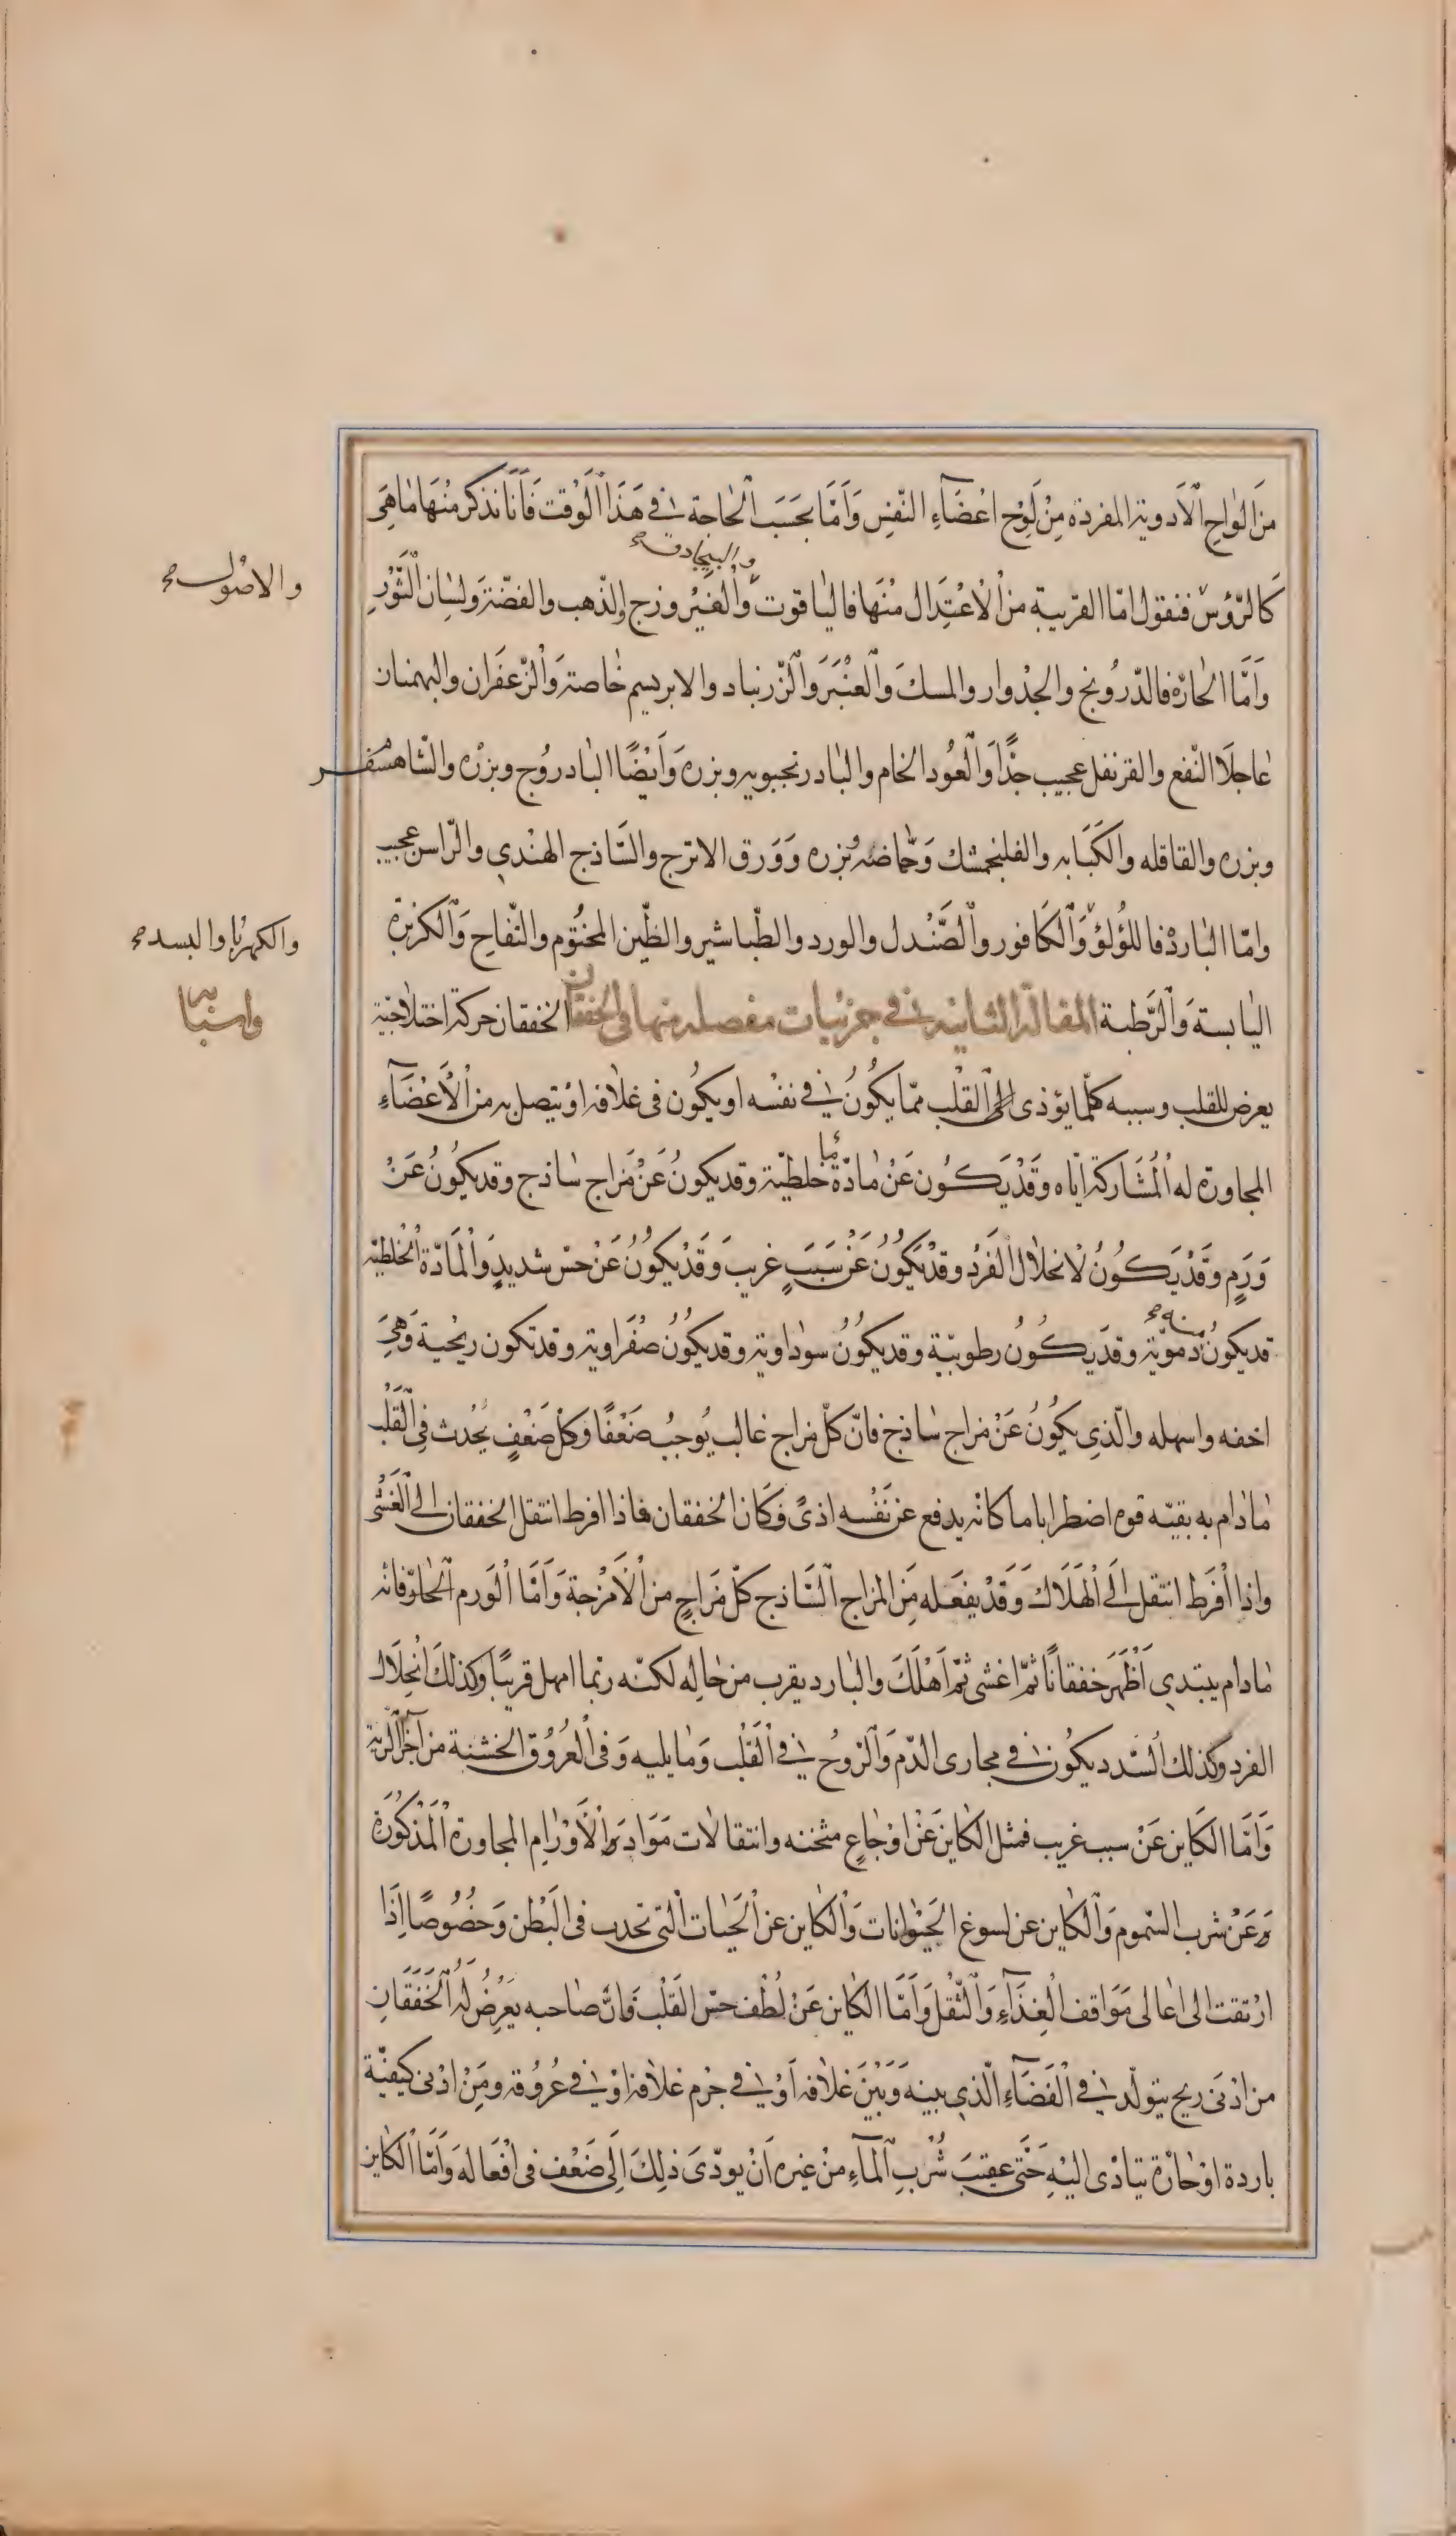 مِنَ الواح الأدوية المفردة مِنْ لَوْحِ اعْضَآءِ النّفسِ وَاَمّا بحَسَبَ الْحاجة في هَذَا الوَقت فَاَنا نذكر مِنْهَا مَا هِيَ
والبيجادق صح
كَالرّؤسْ فنقول امّا القريبة من الْاعْتِدَال منْهَا فاليٰاقوت وَالْفَيْروزج والذّهب والفضّة وَلسَان الثَّوْرِ
والاصُول صح
وَاَمَّا الحارّة فالدّرُونج والجدْوار والمسكَ وَالْعَنْبَرَ وَالزّرنباد والابريسم خاصة وَالزّعفَران والبهمنان
عاجلَا النّفع والقرنفل عجيب جدًّا وَالْعُود الخام والبادرنجبويه وبزره وَاَيْضًا البادرُوج وبزْره والشاهسْفر
وبزره والقاقله والكَبَابه والفلنجمشك وَحُمّاضه وبزره وَوَرق الاترج والسَّاذج الهنْدي والرّاسن عجيب
وامّا البٰاردْ فاللؤلؤ وَالْكَافور والْصَّنْدل والورد والطّباشير والطّين المختُوم والتّفّاحِ وَالكزبرة
والكهرُبا والبسد صح
اليابسة وَالرَّطبة المقالة الثانيه في جزئيات مفصله منها في الخفقان الخفقان حركة اختلاجيّة
يعرض للقلب وسببه كلّما يؤذى الى القْلب ممّا يكُونُ في نفسْه او يكُون فى غلافه اوْ يتصل به من الْأعْضَآءِ
المجاورة له الْمُشَاركة ايّاه وَقَدْ يَكُون عَنْ مٰادّة مّا خلطيّة وقد يكونُ عَنْ مَزاج سٰاذج وقد يكُونُ عَنْ
وَرَمٍ وقَدْ يَكُونُ لانحلال الْفَردُ وقدْ يَكُونُ عَنْ سَبَبٍ غريبَ وَقَدْ يكُونُ عَنْ حسْ شديدٍ وَالْمَادّة الْخلطيّه
قد يكونُ منه صح دمَويّة وقدْ يَكُونُ رطوبيّة وقد يكُونُ سوداوية وقد يكُونُ صفْراوية وقد تكون ريْحية وَهِيَ
اخفه واسهله والّذِي يكُونُ عَنْ مزاج سٰاذج فانّ كلّ مزاج غالب يُوجبُ ضَعْفًا وَكلْ ضَعْفٍ يحُدث فِي الْقَلْب
مٰادٰام به بقيّه قوه اضطراباما كانّه يدفع عن نَفْسه اذىً وَكَان الخفقان فاذا افرط انتقل الخفقان الى الْغَشْى
واذا اَفْرَط انتقل الَى الْهَلَاك وَقَدْ يفعَله مِنَ المزاج السَّاذج كلّ مَزاجٍ من الْاَمْزجة وَاَمَّا الْوَرم الْحارّ فانه
مٰادام يبتدي اَظْهَرَ خفقانًا ثمّ اغشى ثمّ اَهْلَكَ والبارد يقرب من حٰاله لكنّه ربّما امهل قريبًا وكذلكَ انْحِلَال
الفرد وكذلك السّدد يكُون في مجارى الدّم وَالرّوحُ في الْقَلْب وَمٰا يليه وَفى العُرُوق الخشنة من اَجْزآء الرّية
وَاَمَّا الكَاين عَنْ سبب غريب فمثل الكاين عَنْ اوْجٰاعٍ مثخنه وانتقالات مَوَاد وَالْاَوْرَامِ المجاورة الْمَذْكُوْرَة
وَعَنْ شرب السّموم وَالْكاين عن لسوغ الحَيْوٰانات وَالْكاين عن الْحَيات الْتى تحدث فى الْبَطْن وَخصُوصًا اِذَا
ارْتقت الى اعٰالى مَوَاقف الْغِذَآءِ وَالثّقْل وَاَمَّا الكاين عَنْ لُطْف حسّ القَلْبَ فَاِنَّ صٰاحبه يَعْرِضُ لَهُ الْخَفَقَانِ
من ادْنىَ ريح يتولّد في الْفَضَآءِ الّذي بينهَ وَبيْنَ غلاٰفه اَوْ في جُرْم غلاٰفه اوْ في عُرُوقه ومِنْ ادْنى كيفيّة
باردة اوْ حٰارّة تتادّى اليْهِ حَتّى عقيبَ شُرْبِ الْمآءِ منْ غيره اَنْ يودّىَ ذٰلكَ اِلَى ضَعْف فى افْعَاله وَاَمّا الْكاين